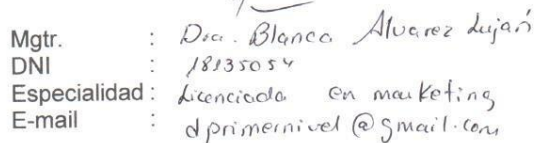 Mgtr. : Dra. Blanca Alvarez Lujan
DNI : 18135054
Especialidad : Licenciada en marketing
E-mail : dprimernivel@gmail.com